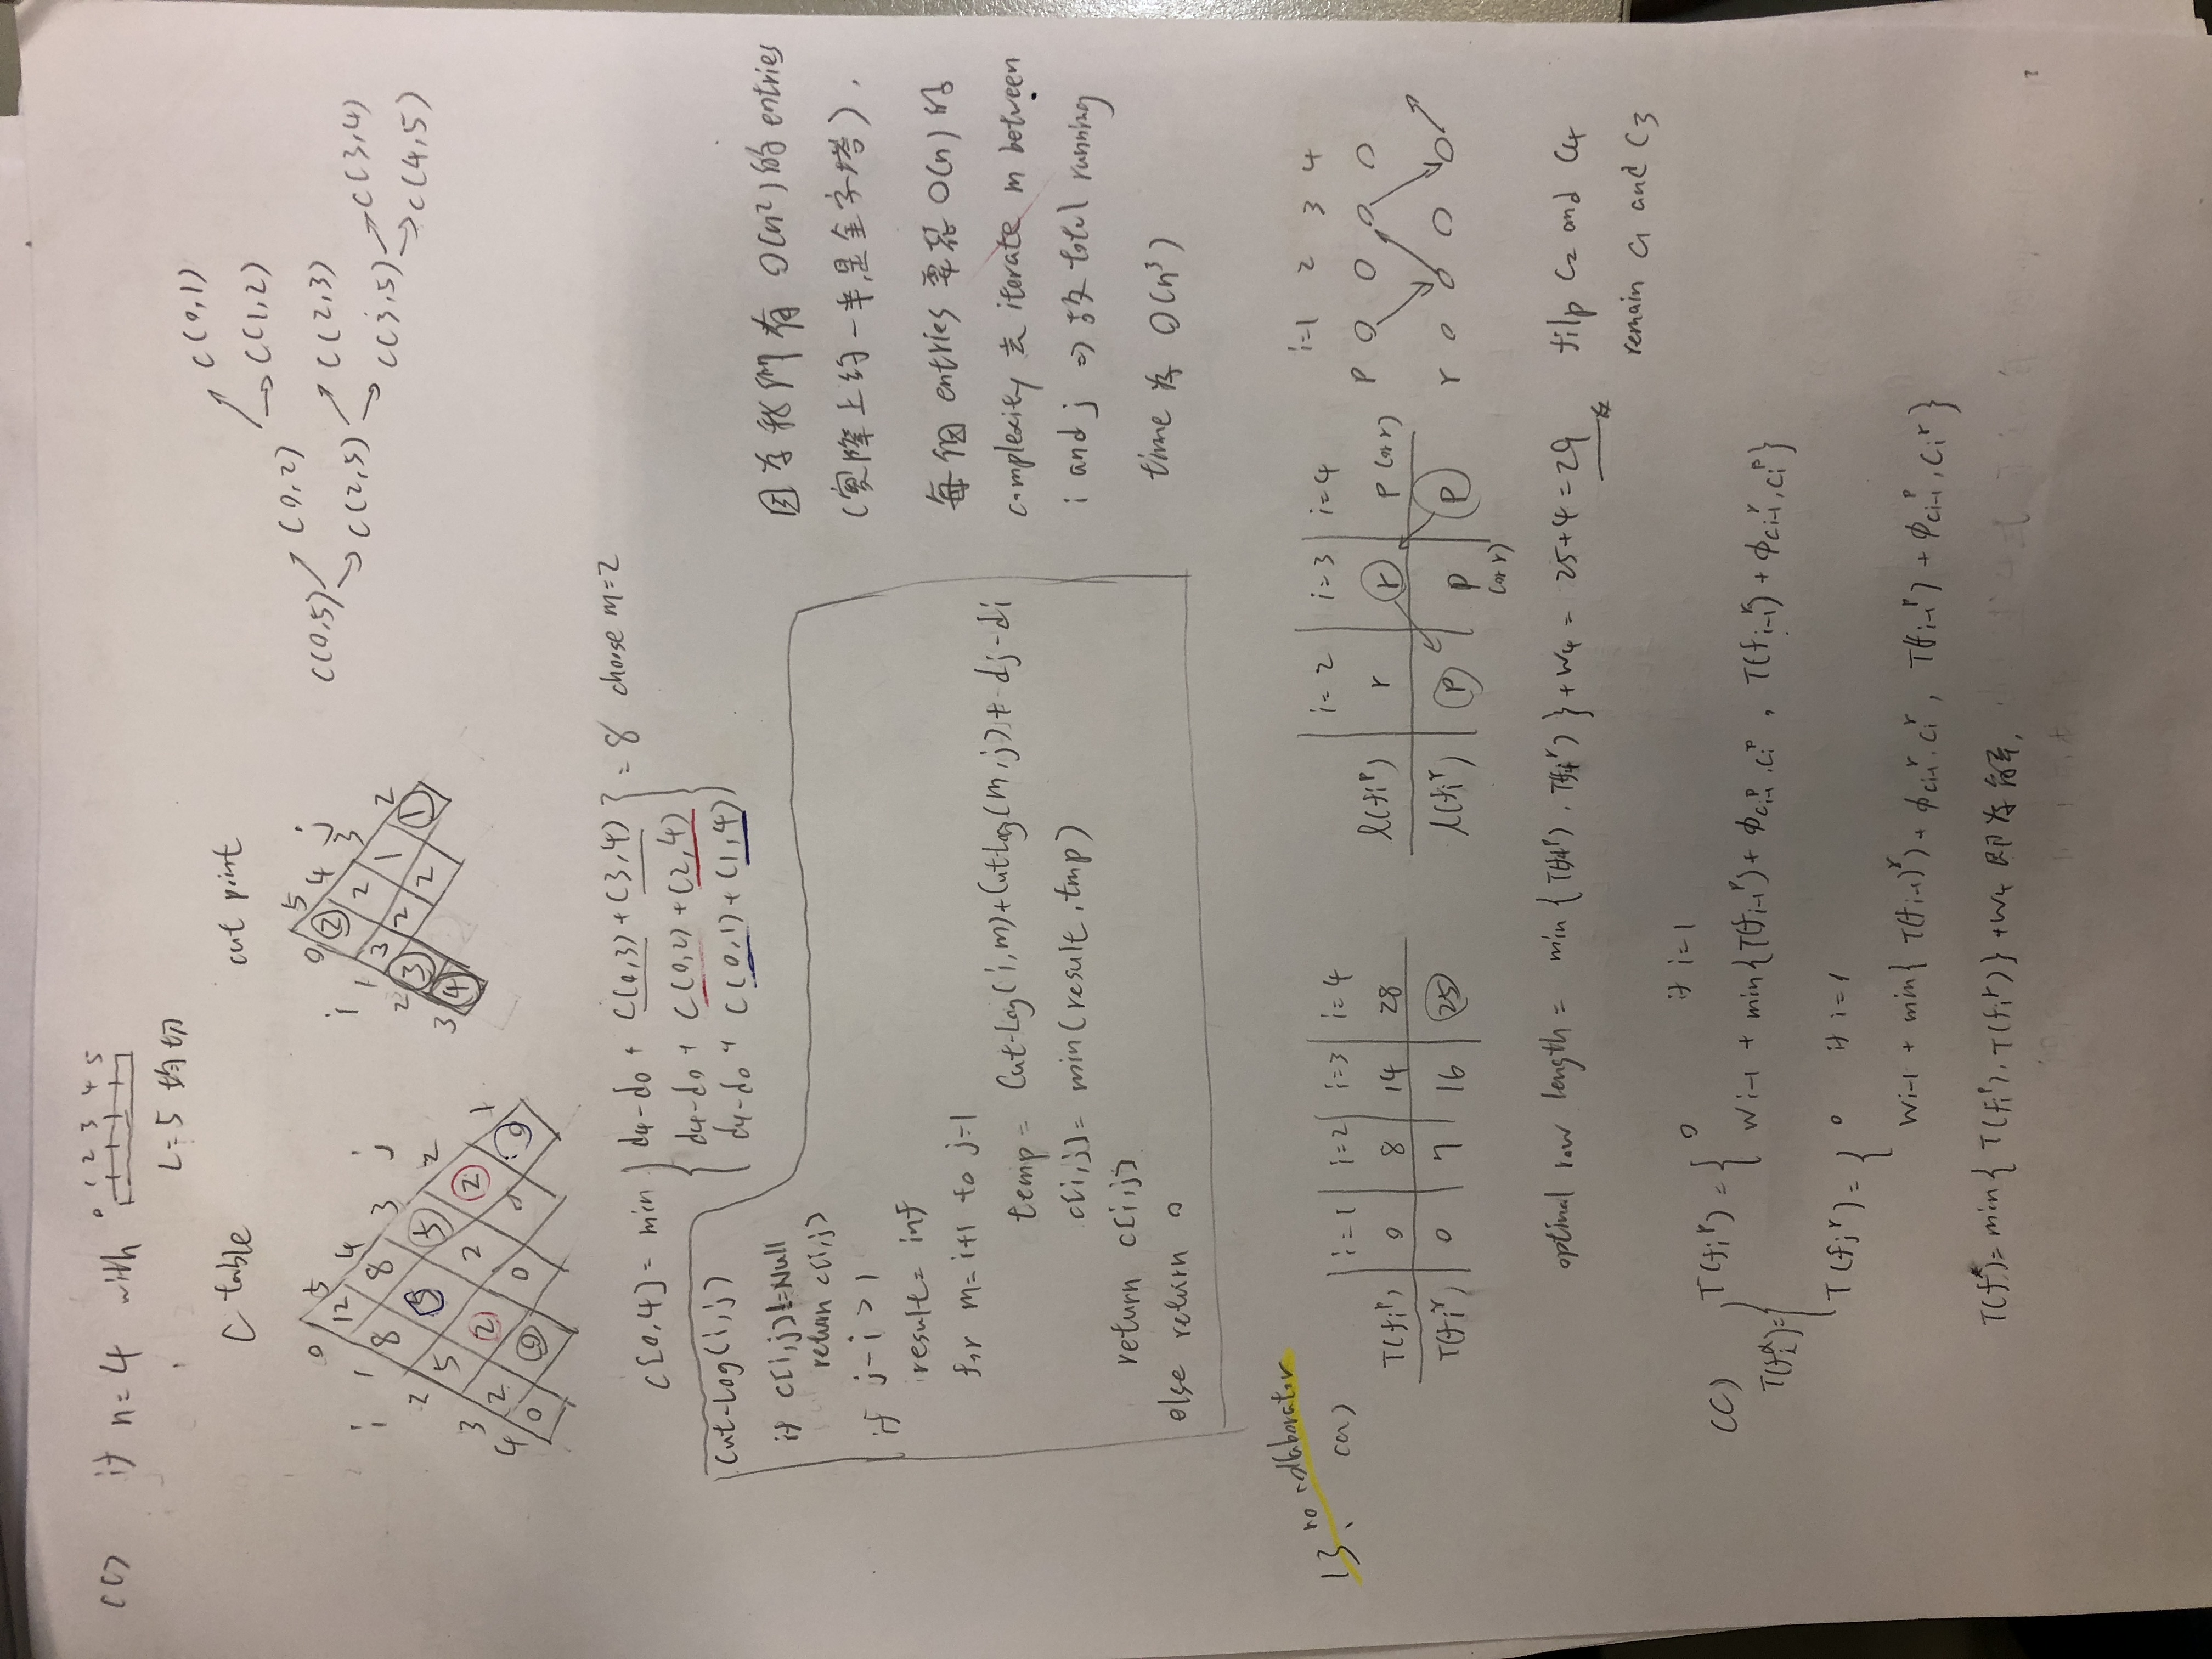 (c) if n=4 with 0 1 2 3 4 5
L=5 均切
C table
cut point
0 5
1 12 4
i 8 8 3 j
2 5 5 5 2
3 2 2 2 2 1
4 0 0 0 0 0
0 5
i ② 4 j
1 3 2 3
2 ③ 2 1 2
3 ④ 2 ①
C(0,5)
C(0,2)
C(2,5)
C(0,1)
C(1,2)
C(2,3)
C(3,5)
C(3,4)
C(4,5)
C[0,4] = min { d4-d0 + C(0,3) + C(3,4)
d4-d0 + C(0,2) + C(2,4)
d4-d0 + C(0,1) + C(1,4) } = 8 choose m=2
Cut-Log(i,j)
if c[i,j] != Null
return c[i,j]
if j-i > 1
result = inf
for m = i+1 to j-1
temp = Cut-Log(i,m) + Cut-Log(m,j) + dj-di
c[i,j] = min(result, tmp)
return c[i,j]
else return 0
因為我們有 O(n²)的 entries
(實際上約一半,是金字塔).
每個 entries 要花 O(n) 的
complexity 去 iterate m between
i and j => 故 total running
time 為 O(n³)
13. no collaborator
(a)
i=1 i=2 i=3 i=4
T(fiᵖ) 0 8 14 28
T(fiʳ) 0 7 16 25
i=2 i=3 i=4
l(fiᵖ) r r p (or r)
l(fiʳ) p p p
(or r)
i=1 2 3 4
p o o o o
r o o o o
optimal row length = min{T(f4ᵖ), T(f4ʳ)} + W4 = 25+4 = 29
filp C2 and C4
remain C1 and C3
(C)
T(fiᵅ) = { T(fiᵖ) = { 0 if i=1
Wi-1 + min{T(fi-1ᵖ) + ϕci-1ᵖ,ciᵖ , T(fi-1ʳ) + ϕci-1ʳ,ciᵖ}
T(fjʳ) = { 0 if i=1
Wi-1 + min{T(fi-1)ʳ) + ϕci-1ʳ,ciʳ , T(fi-1ᵖ) + ϕci-1ᵖ,ciʳ}
T(f*) = min{T(fiᵖ), T(fiʳ)} + W4 即為解.